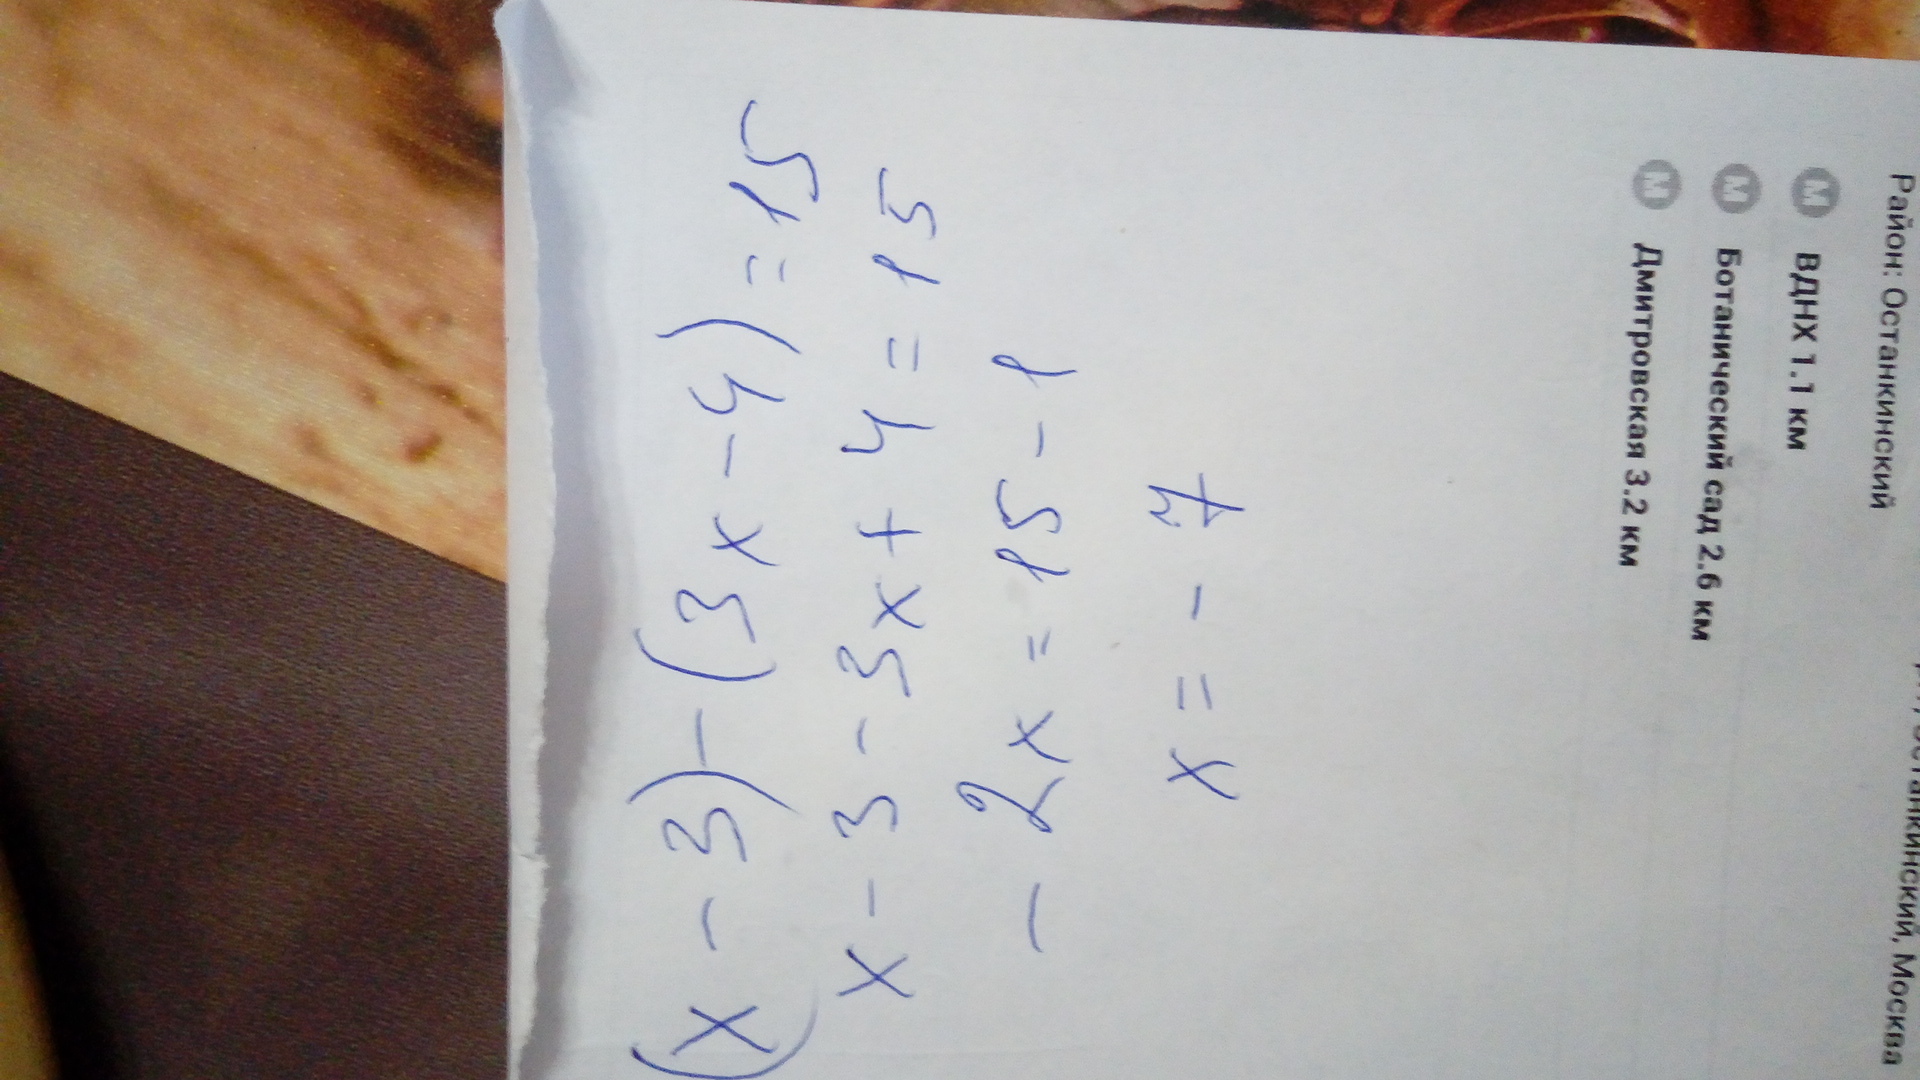 (x-3)-(3x-4)=15
x-3-3x+4=15
-2x=15-1
x=-7
Район: Останкинский
М ВДНХ 1.1 км
М Ботанический сад 2.6 км
М Дмитровская 3.2 км
Останкинский, Москва